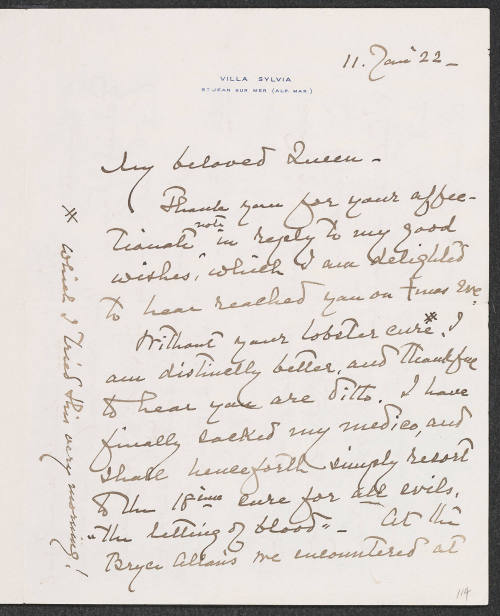 11. Jan' 22 –
VILLA SYLVIA
ST JEAN SUR MER (ALP. MAR.)
My beloved Queen –
Thank you for your affec-
tionate note in reply to my good
wishes, which I am delighted
to hear reached you on Xmas Eve.
Without your lobster cure*, I
am distinctly better, and thankful
to hear you are ditto. I have
finally sacked my medico, and
shall henceforth simply resort
to the 18ième cure for all evils,
"the letting of blood" – At the
Bryce Allans we encountered at
* which I tried this very morning!
114